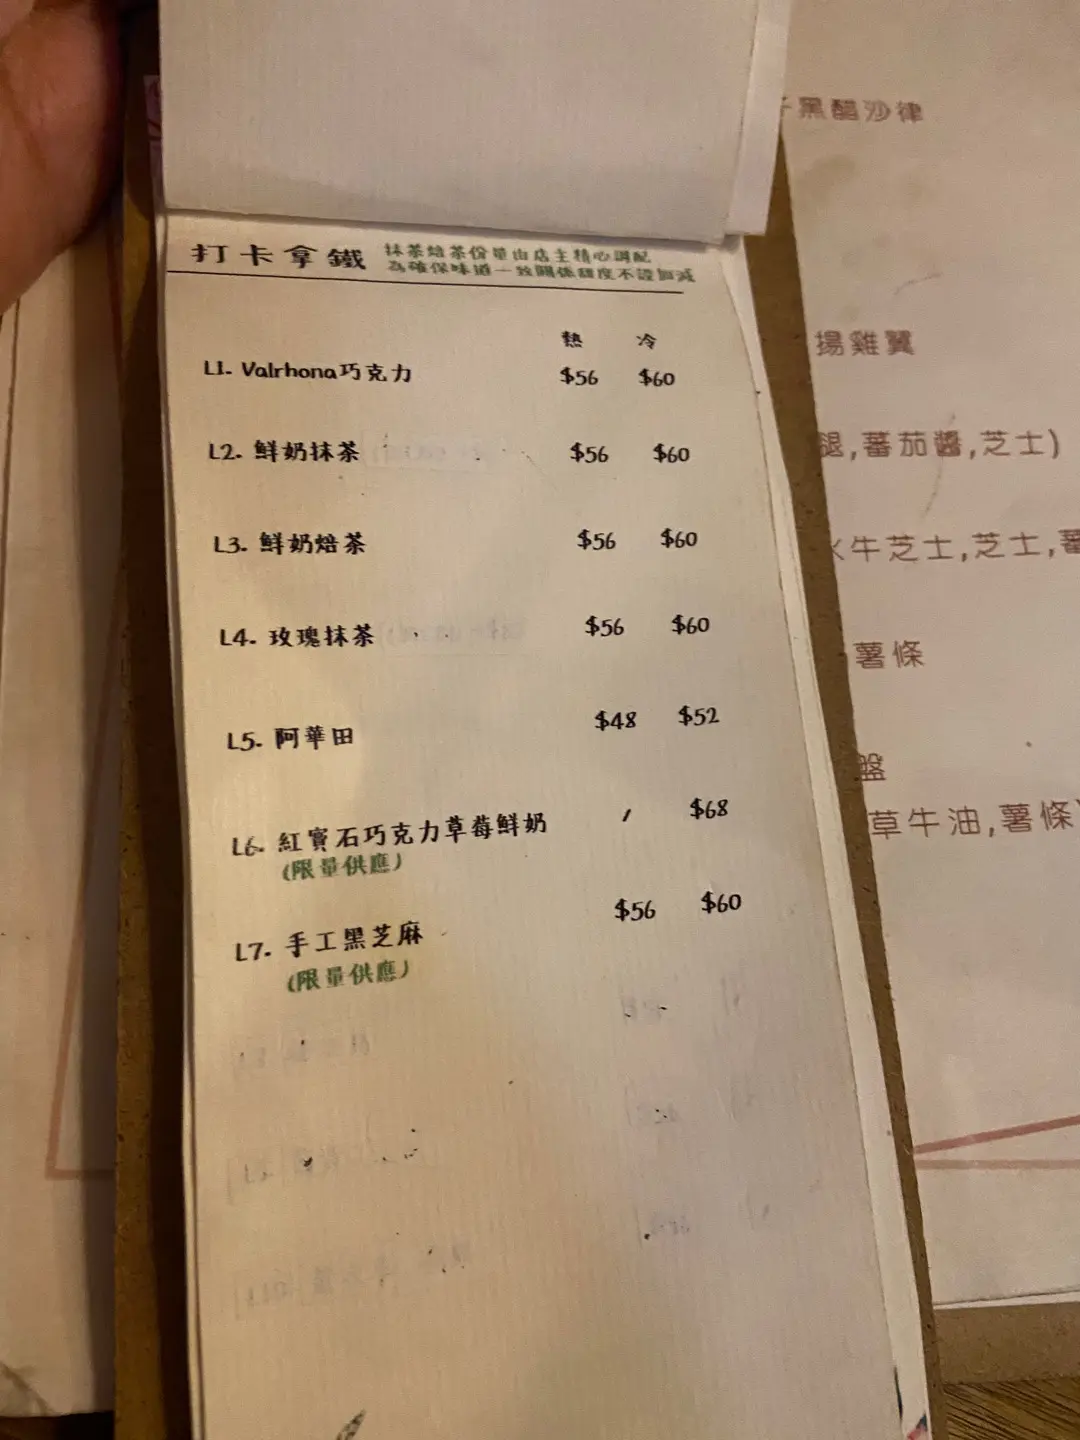 打卡拿鐵
抹茶焙茶份量由店主精心調配
為確保味道一致關係甜度不設加減
熱 冷
L1. Valrhona巧克力 $56 $60
L2. 鮮奶抹茶 $56 $60
L3. 鮮奶焙茶 $56 $60
L4. 玫瑰抹茶 $56 $60
L5. 阿華田 $48 $52
L6. 紅寶石巧克力草莓鮮奶 / $68
(限量供應)
L7. 手工黑芝麻 $56 $60
(限量供應)
黑醋沙律
揚雞翼
腿,蕃茄醬,芝士)
火牛芝士,芝士,蕃
薯條
盤
草牛油,薯條